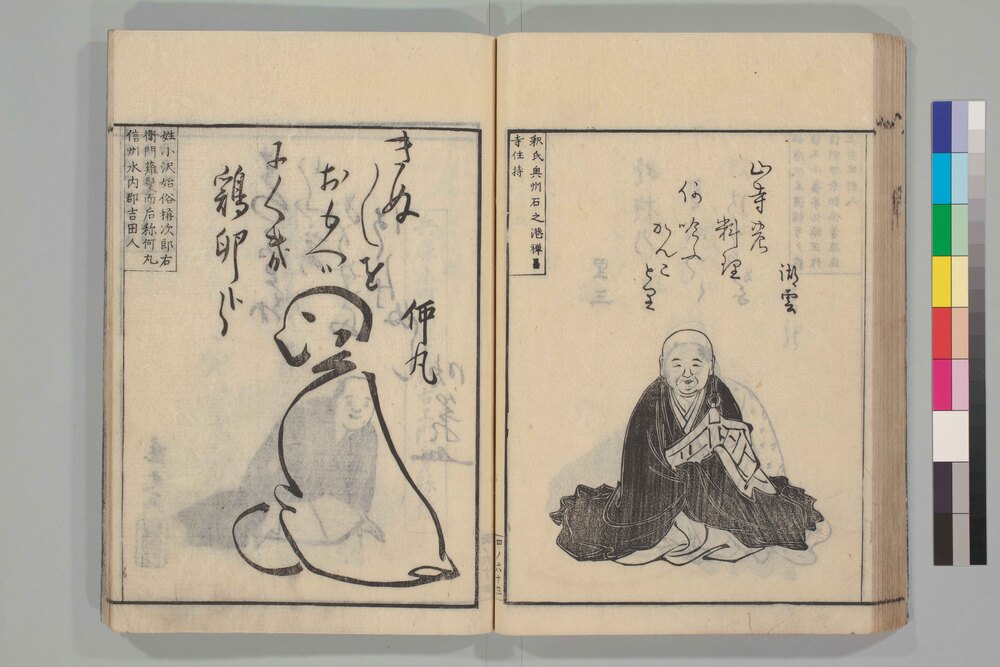 釈氏奥州石之港禅昌
寺住持
湖雲
山寺や
料理
何喰ふ
かんこ
とり
四ノ六十三
仲丸
きぬ
しを
おもへば
にくき
鶏卵
姓小沢始俗称次郎右
衛門薙髪而后称何丸
信州水内郡吉田人